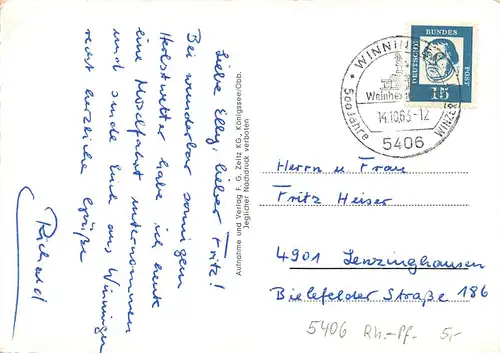 Liebe Elly, lieber Fritz!
Bei wunderbar sonnigem
Herbstwetter habe ich heute
eine Moselfahrt unternommen
und sende Euch aus Winningen
recht herzliche Grüße
Richard
Aufnahme und Verlag F. G. Zeitz KG., Königssee/Obb.
Jeglicher Nachdruck verboten
DEUTSCHE BUNDES POST
15
WINNIN
500 Jahre
Weinhe
14.10.63-12
WINZE
5406
Herrn u. Frau
Fritz Heiser
4901 Lenzinghausen
Bielefelder Straße 186
5406 Rh.-Pf. 5,-